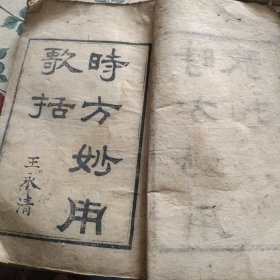 時方妙用
歌括
王永清